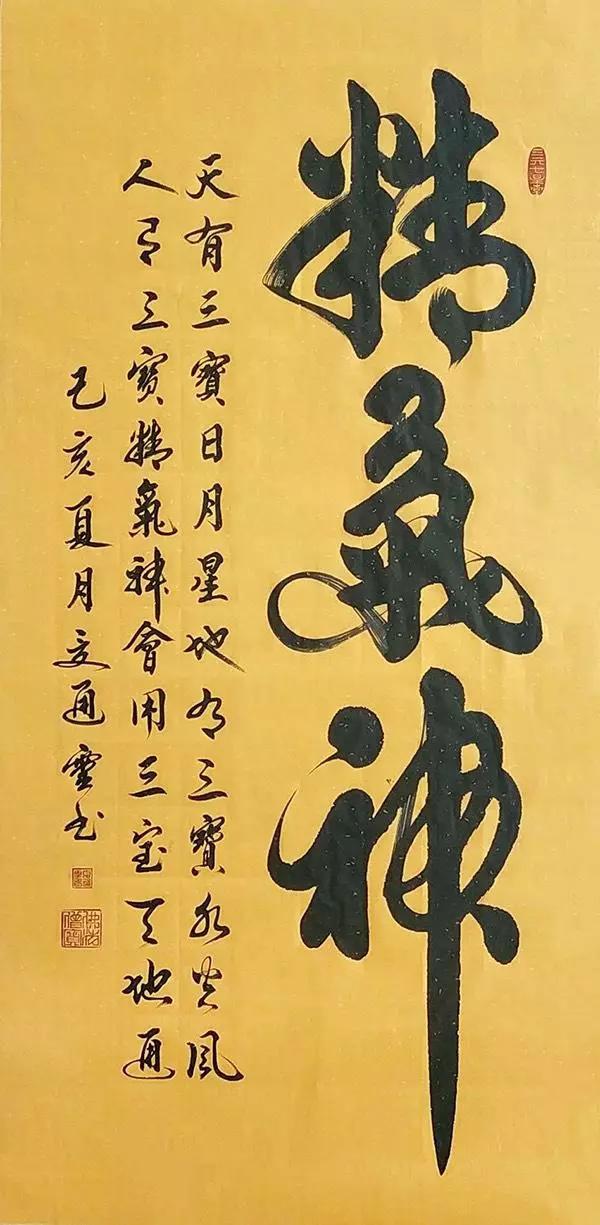 精氣神
天有三寶日月星地有三寶水火風
人有三寳精氣神會用三宝天地通
己亥夏月文通靈书
佛法僧寶